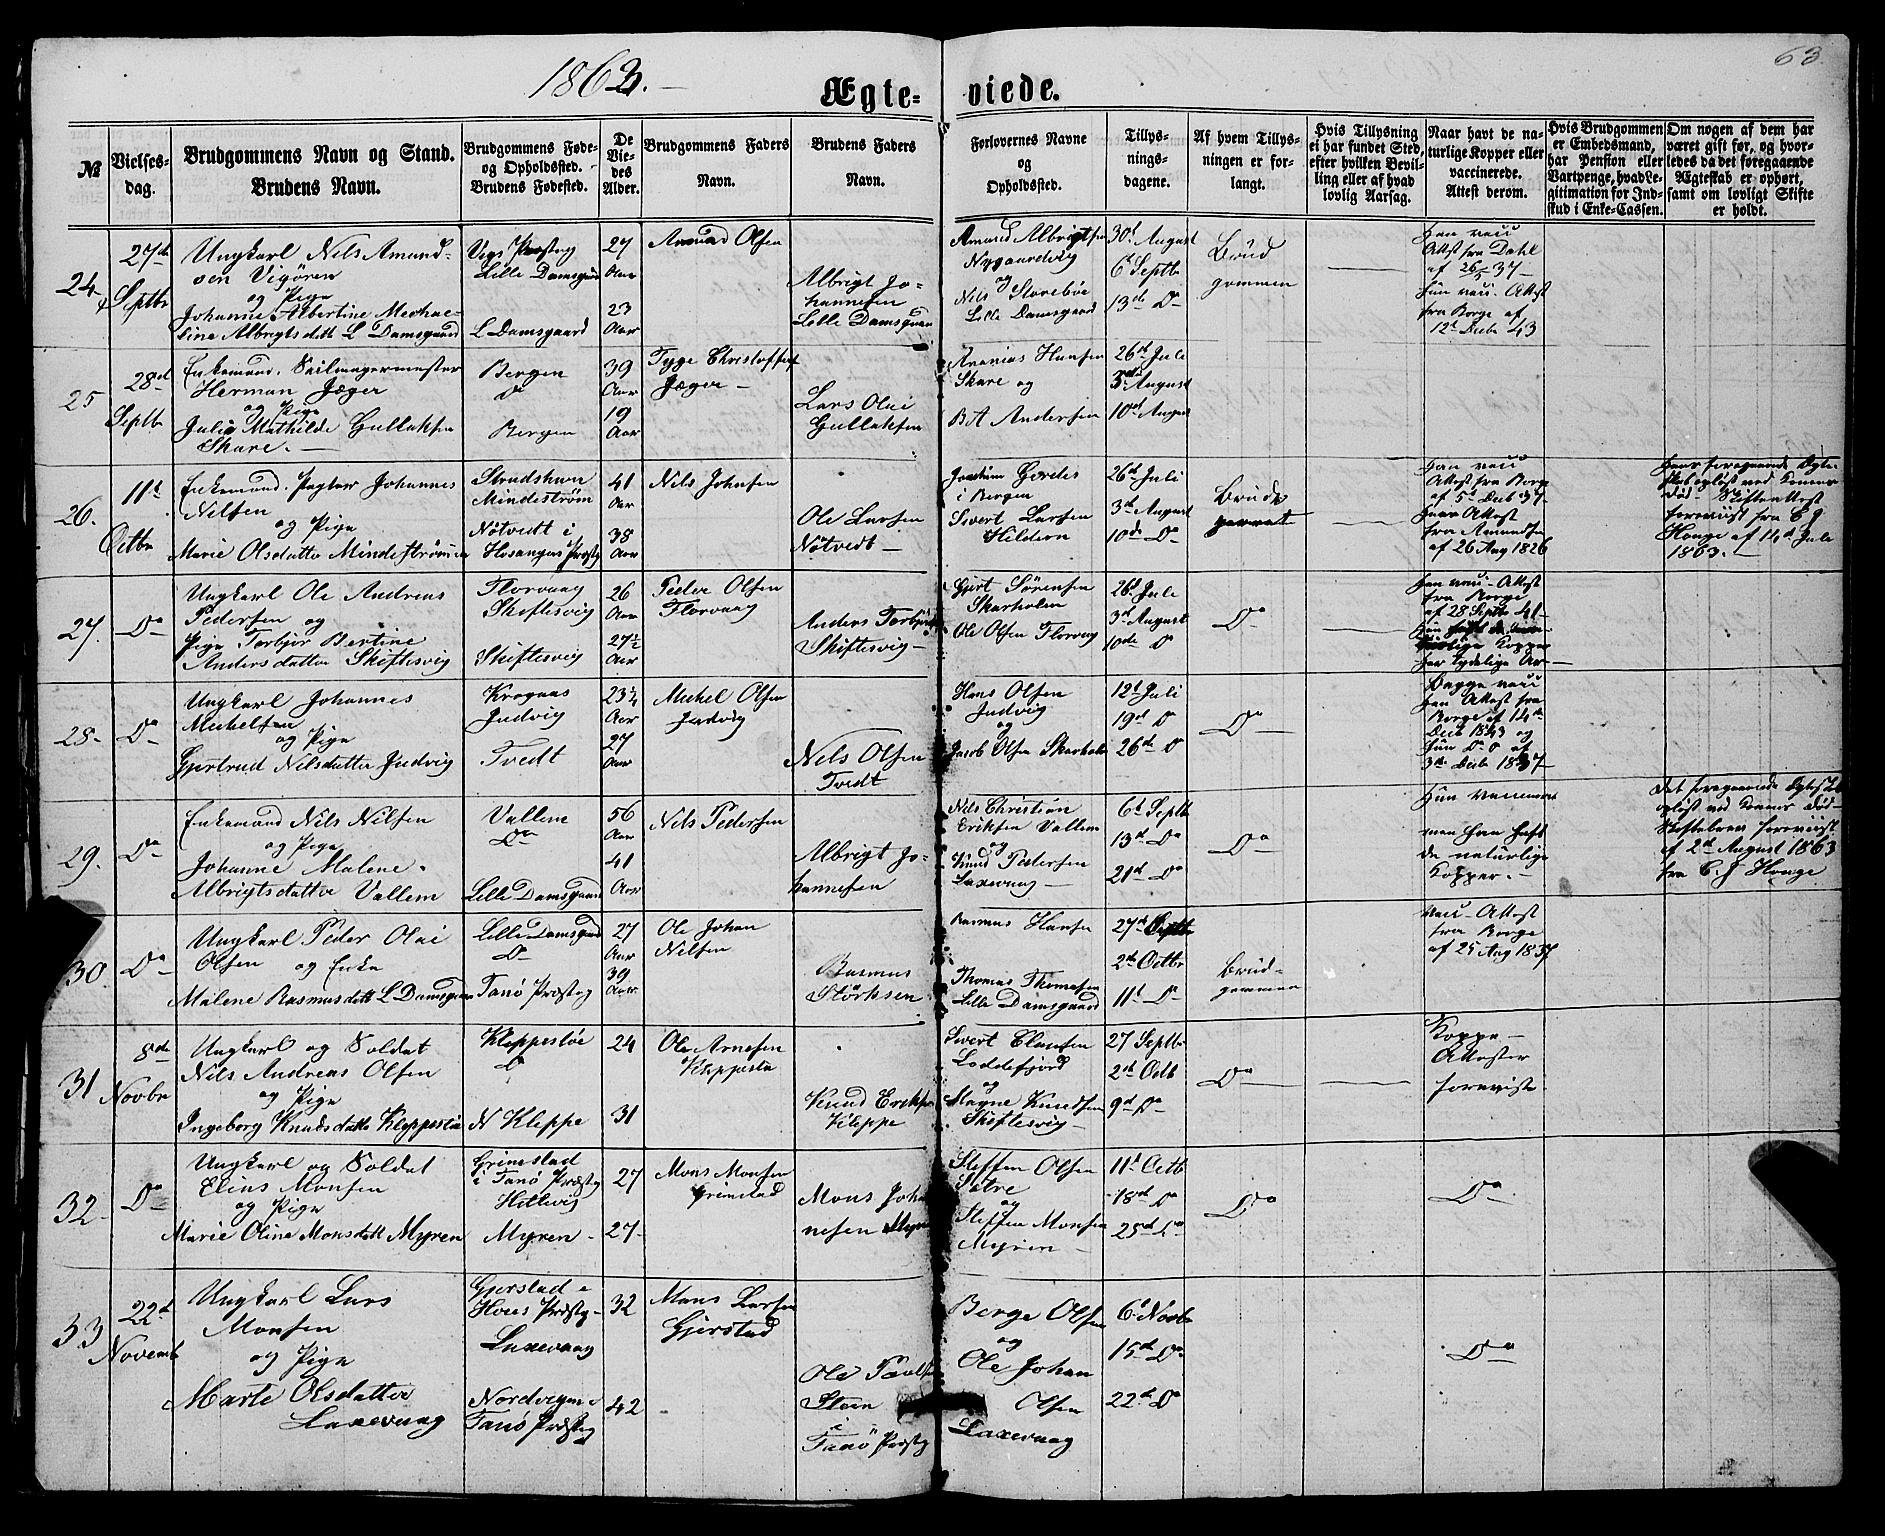 1863.
63.
Ægteviede.
№
Vielsesdag.
Brudgommens Navn og Stand.
Brudens Navn.
Brudgommens Føde-
og Opholdssted.
Brudens Fødested.
De
Vie-
des
Alder.
Brudgommens Faders
Navn.
Brudens Faders
Navn.
Forlovernes Navne
og
Opholdssted.
Tillys-
nings-
dagene.
Af hvem Tillys-
ningen er for-
langt.
Hvis Tillysning
ei har fundet Sted,
efter hvilken Bevil-
ling eller af hvad
lovlig Aarsag.
Naar havt de na-
turlige Kopper eller
vaccinerede.
Attest derom.
Hvis Brudgommen
er Embedsmand,
har Pension eller
Vartpenge, hvad Le-
gitimation for Ind-
skud i Enke-Cassen.
Om nogen af dem har
været gift før, og hvor-
ledes da det foregaaende
Ægteskab er ophørt,
samt om lovligt Skifte
er holdt.
24
27de
Septbr
Ungkarl Nils Amund-
sen Vigøren
og Pige
Johanne Albertine Mechae-
line Albrigtsdatt L Damsgaard
Lille Damsgaard
L Damsgaard
27
Aar
23
Aar
Amund Olsen
Albrigt Jo-
hannesen
Lille Damsgaard
Amund Albrigtsen
Nygaardsvig
og
Nils Storebøe
Lille Damsgaard
30d August
6d Septbr
13de Do
Brud
gommen
Han vacc
Attest fra Dahl
af 26/5 37
Hun vacc. Attest
fra Borge af
12t Decbr 43
25
28d
Septbr
Enkemand. Seilmagermester
Herman Jæger
og Pige
Julie Mathilde Gullaksen
Skare.
Bergen
Do
Bergen
39
Aar
19
Aar
Tyge Christoffer
Jæger
Lars Olai
Gullaksen
Ananias Hansen
Skare og
B A Andersen
26d Juli
3de August
10d August
26.
11t
Octbr
Enkemand. Pagter Johannes
Nilsen
og Pige
Marie Olsdatter Mindestrømmen
Strudshavn
Mindestrøm
Nötvedt i
Hosanger Præstg
41
Aar
38
Aar
Nils Johnsen
Ole Larsen
Nötvedt
Joachim Gerdes
i Bergen
Sivert Larsen
Hilderen
26d Juli
3d August
10de Do
Brud
Han vacc
Attest fra Borge
af 5t Decb 37
Attest
fra Amundsen
af 26 Aug 1826
Hans foregaaende Ægte-
skab opløst ved Konens
død. Skifteattest
foreviist fra C J
Houge af 14d Juli
1863.
27.
Do
Ungkarl Ole Andreas
Pedersen og
Pige Torbjør Bertine
Andersdatter Skiftesvig
Florvaag
Skiftesvig
Skiftesvig
26
Aar
27½
Aar
Peder Olsen
Florvaag
Anders Torbjørn
Skiftesvig
Gjert Sörensen
Skarholm
Ole Olsen Florvaag
26d Juli
3d August
10de Do
Do
Han vacc. Attest
fra Borge
af 28 Septbr 41
Kopper
har tydelige Ar
28.
Do
Ungkarl Johannes
Michelsen
og Pige
Gjertrud Nilsdatter Judvig
Krognæs
Judvig
Tvedt
23¼
Aar
27
Aar
Michel Olsen
Judvig
Nils Olsen
Tvedt
Hans Olsen
Judvig
og
Jacob Olsen Skarholm
12t Juli
19d Do
26de Do
Do
Begge vacc
han Attest fra
Borge af 14de
Decb 1843 og
Hun Do af
3de Decbr 1837
29.
Do
Enkemand Nils Nilsen
og Pige
Johanne Malene
Albrigtsdatter Vallem
Vallem
Do
Lille Damsgaard
56
Aar
41
Aar
Nils Pedersen
Albrigt Jo-
hannesen
Nils Christian
Eriksen Vallem
og
Knud Pedersen
Laxevaag
6d Septbr
13d Do
21d Do
Do
Hun
men Han havt
de naturlige
Kopper.
Det foregaaende Ægtesk
opløst ved Konens død
Skiftebrev foreviist
af 2d August 1863
fra C. J Houge
30.
Do
Ungkarl Peder Olai
Olsen og Enke
Malene Rasmusdatt L Damsgaard
Lille Damsgaard
Do
Fanø Præstg
27
Aar
39
Aar
Ole Johan
Nilsen
Rasmus
Störksen
Rasmus Hansen
Thomas Thomesen
Lille Damsgaard
27d Septbr
2d Octbr
11t Do
Brud-
gommen
Vacc. Attest
fra Borge
af 25 Aug 1837
31
8de
Novbr
Ungkarl og Soldat
Nils Andreas Olsen
og Pige
Ingeborg Knudsdatt Kleppestøe
Kleppestøe
Do
N Kleppe
24
31
Ole Arnesen
Kleppestø
Knud Eriksen
Kleppe
Sivert Clausen
Loddefjord
og
Magne Knudsen
Skiftesvig
27 Septbr
2d Octb
9d Do
Do
Koppe-
Attester
foreviste
32
Do
Ungkarl og Soldat
Elias Monsen
og Pige
Marie Oline Monsdatt Myren
Grimstad
i Fanø Præstg
Myren
27
27
Mons Monsen
Grimstad
Mons Johan
nesen Myren
Steffen Olsen
Sætre
og
Steffen Monsen
Myren
11t Octbr
18d Do
25d Do
Do
Do
33
22d
Novemb
Ungkarl Lars
Monsen
og Pige
Marte Olsdatter
Laxevaag
Gjerstad i
Hous Præstg
Laxevaag
Nordvigen i
Fanø Præstg
32
42
Mons Larsen
Gjerstad
Ole Paulsen
Steen
i
Fanø Præstg
Berge Olsen
og
Ole Johan
Olsen
Laxevaag
6d Novbr
15d Do
22d Do
Do